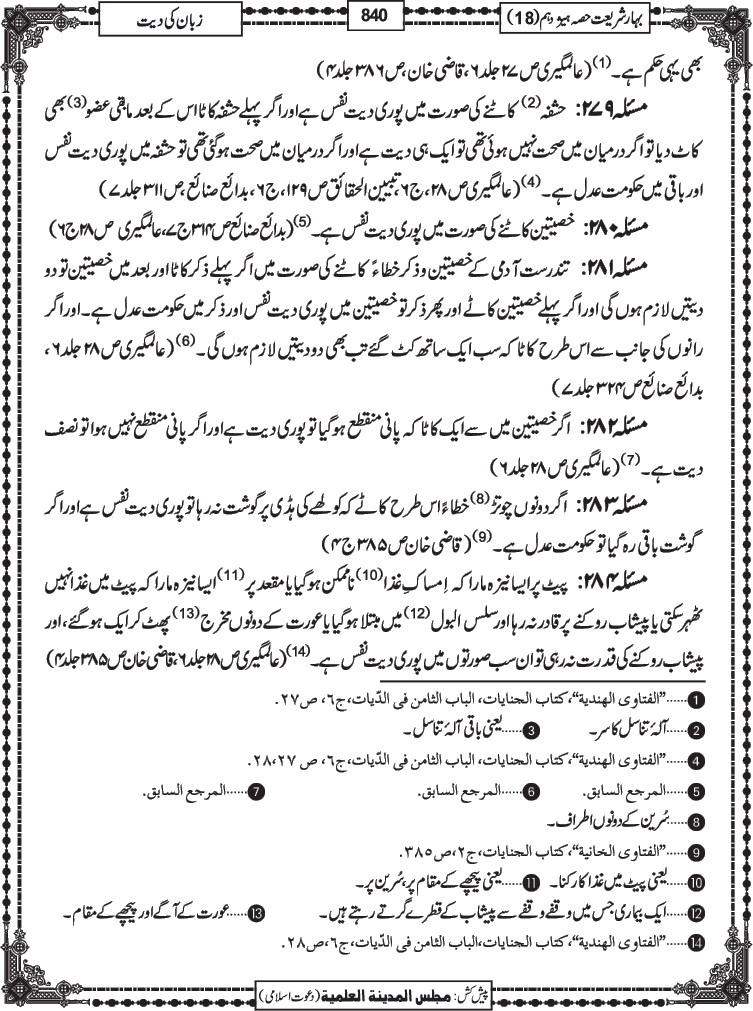 بہارِ شریعت حصہ ہیژدہم (18)
840
زبان کی دیت
بھی یہی حکم ہے۔(1) (عالمگیری ص ۲۷ جلد ۶، قاضی خان، ص ۳۸۶ جلد ۴)
مسئلہ ۲۷۹: حشفہ (2) کاٹنے کی صورت میں پوری دیت نفس ہے اور اگر پہلے حشفہ کاٹا اس کے بعد مابقی عضو(3) بھی
کاٹ دیا تو اگر درمیان میں صحت نہیں ہوئی تھی تو ایک ہی دیت ہے اور اگر درمیان میں صحت ہوگئی تھی تو حشفہ میں پوری دیت نفس
اور باقی میں حکومت عدل ہے۔(4) (عالمگیری ص ۲۸، ج ۶، تبیین الحقائق ص ۱۲۹، ج ۶، بدائع صنائع، ص ۳۱۱ جلد ۷)
مسئلہ ۲۸۰: خصیتین کاٹنے کی صورت میں پوری دیت نفس ہے۔(5) (بدائع صنائع ص ۳۱۴ ج ۷، عالمگیری ص ۲۸ ج ۶)
مسئلہ ۲۸۱: تندرست آدمی کے خصیتین و ذکر خطاءً کاٹنے کی صورت میں اگر پہلے ذکر کاٹا اور بعد میں خصیتین تو دو
دیتیں لازم ہوں گی اور اگر پہلے خصیتین کاٹے اور پھر ذکر تو خصیتین میں پوری دیت نفس اور ذکر میں حکومت عدل ہے۔ اور اگر
رانوں کی جانب سے اس طرح کاٹا کہ سب ایک ساتھ کٹ گئے تب بھی دو دیتیں لازم ہوں گی۔(6) (عالمگیری ص ۲۸ جلد ۶،
بدائع صنائع ص ۳۲۴ جلد ۷)
مسئلہ ۲۸۲: اگر خصیتین میں سے ایک کاٹا کہ پانی منقطع ہوگیا تو پوری دیت ہے اور اگر پانی منقطع نہیں ہوا تو نصف
دیت ہے۔(7) (عالمگیری ص ۲۸ جلد ۶)
مسئلہ ۲۸۳: اگر دونوں چوتڑ(8) خطاءً اس طرح کاٹے کہ کولھے کی ہڈی پر گوشت نہ رہا تو پوری دیت نفس ہے اور اگر
گوشت باقی رہ گیا تو حکومت عدل ہے۔(9) (قاضی خان ص ۳۸۵ ج ۴)
مسئلہ ۲۸۴: پیٹ پر ایسا نیزہ مارا کہ اِمساکِ غذا (10) ناممکن ہوگیا یا مقعد پر (11) ایسا نیزہ مارا کہ پیٹ میں غذا نہیں
ٹھہر سکتی یا پیشاب روکنے پر قادر نہ رہا اور سلس البول (12) میں مبتلا ہوگیا یا عورت کے دونوں مخرج (13) پھٹ کر ایک ہوگئے، اور
پیشاب روکنے کی قدرت نہ رہی تو ان سب صورتوں میں پوری دیت نفس ہے۔(14) (عالمگیری ص ۲۸ جلد ۶، قاضی خان ص ۳۸۵ جلد ۴)
1......"الفتاوی الهندیة"، کتاب الجنایات، الباب الثامن فی الدّیات، ج ۶، ص ۲۷.
2......آلۂ تناسل کا سر۔ 3......یعنی باقی آلۂ تناسل۔
4......"الفتاوی الهندیة"، کتاب الجنایات، الباب الثامن فی الدّیات، ج ۶، ص ۲۷، ۲۸.
5......المرجع السابق. 6......المرجع السابق. 7......المرجع السابق.
8......سُرین کے دونوں اطراف۔
9......"الفتاوی الخانیة"، کتاب الجنایات، ج ۲، ص ۳۸۵.
10......یعنی پیٹ میں غذا کا رکنا۔ 11......یعنی پیچھے کے مقام پر، سُرین پر۔
12......ایک بیماری جس میں وقفے وقفے سے پیشاب کے قطرے گرتے رہتے ہیں۔ 13......عورت کے آگے اور پیچھے کے مقام۔
14......"الفتاوی الهندیة"، کتاب الجنایات، الباب الثامن فی الدّیات، ج ۶، ص ۲۸.
پیش کش: مجلس المدینة العلمیة (دعوت اسلامی)